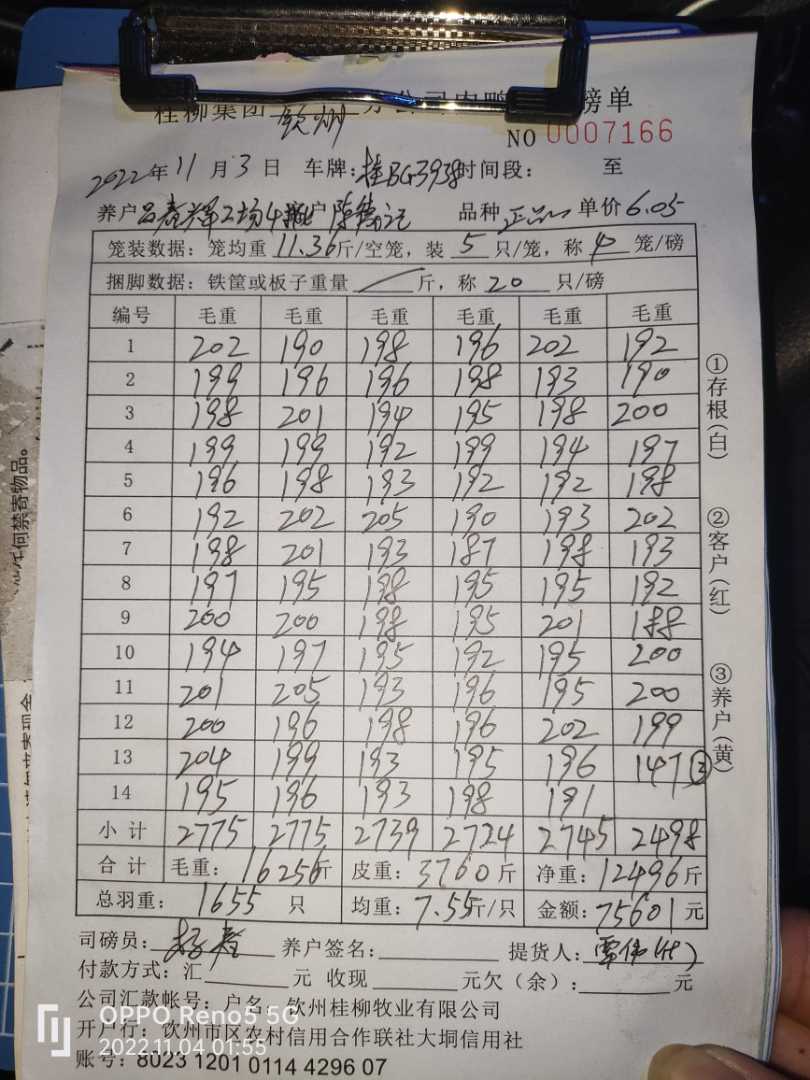 桂柳集团 钦州 分公司肉鸭 榜单
NO 0007166
2022年11月3日 车牌:桂BG3938时间段: 至
养户 工场4 户 品种 正品 单价6.05
笼装数据:笼均重11.36斤/空笼,装5只/笼,称4笼/磅
捆脚数据:铁筐或板子重量 斤,称20只/磅
编号 毛重 毛重 毛重 毛重 毛重 毛重
1 202 190 198 196 202 192
2 199 196 196 198 193 190
3 198 201 194 195 198 200
4 199 199 192 199 194 197
5 196 198 193 192 192 198
6 192 202 205 190 193 202
7 198 201 193 187 198 193
8 197 195 198 195 195 192
9 200 200 198 195 201 188
10 194 197 195 192 195 200
11 201 205 193 196 195 200
12 200 196 198 196 202 199
13 204 199 193 195 196 147 ③
14 195 196 193 198 191
小计 2775 2775 2739 2724 2745 2498
合计 毛重:16256斤 皮重:3760斤 净重:12496斤
总羽重:1655只 均重:7.55斤/只 金额:75601元
司磅员: 养户签名: 提货人:
付款方式:汇 元 收现 元欠(余): 元
公司汇款帐号:户名:钦州桂柳牧业有限公司
开户行:钦州市区农村信用合作联社大垌信用社
账号:8023 1201 0114 4296 07
①存根(白)
②客户(红)
③养户(黄)
任何禁寄物品。
OPPO Reno5 5G
2022.11.04 01:55